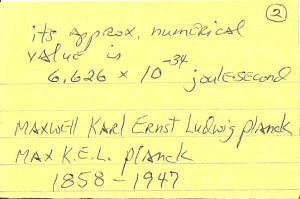 ②
its approx. numerical
value is
6.626 × 10⁻³⁴ joule-second
MAXWELL KARL ERNST Ludwig planck
MAX K.E.L. planck
1858-1947